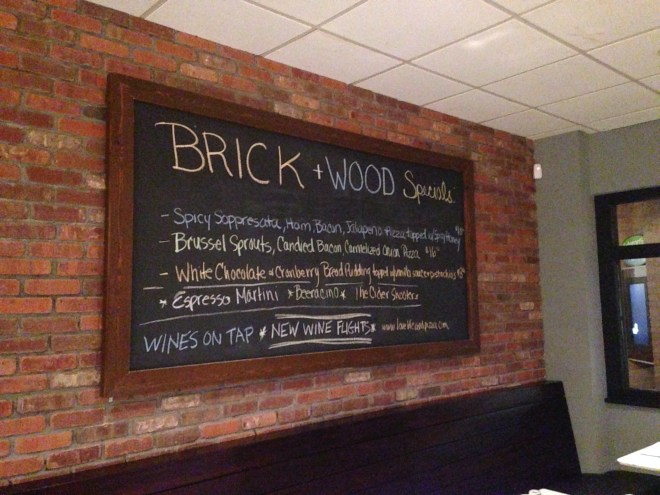 BRICK + WOOD Specials
- Spicy Soppresata, Ham, Bacon, Jalapeno Pizza topped w/ Spicy Honey
- Brussel Sprouts, Candied Bacon, Carmelized Onion Pizza $16
- White Chocolate & Cranberry Bread Pudding topped w/ vanilla
* Espresso Martini * Beeracino * The Cider Shooter
WINE'S ON TAP * NEW WINE FLIGHTS *